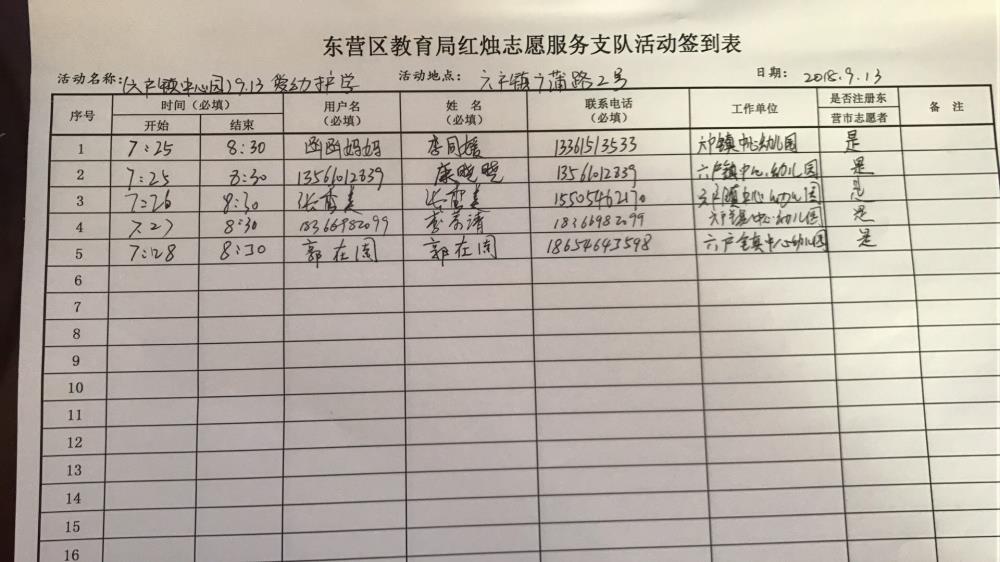 东营区教育局红烛志愿服务支队活动签到表
活动名称:(六户镇中心园)9.13 爱幼护学 活动地点: 六户镇广蒲路2号 日期: 2018.9.13
序号 时间(必填) 用户名 姓 名 联系电话 工作单位 是否注册东 备 注
开始 结束 (必填) (必填) (必填) 营市志愿者
1 7:25 8:30 函函妈妈 李同媛 13361513533 六户镇中心幼儿园 是
2 7:25 8:30 13561012839 康晓晓 13561012839 六户镇中心幼儿园 是
3 7:26 8:30 15505462170 六户镇中心幼儿园 是
4 7:27 8:30 18366982099 18366982099 六户镇中心幼儿园 是
5 7:28 8:30 郭在国 郭在国 18654643598 六户镇中心幼儿园 是
6
7
8
9
10
11
12
13
14
15
16